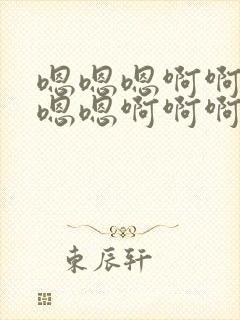 嗯嗯嗯啊啊
嗯嗯啊啊啊
束辰轩